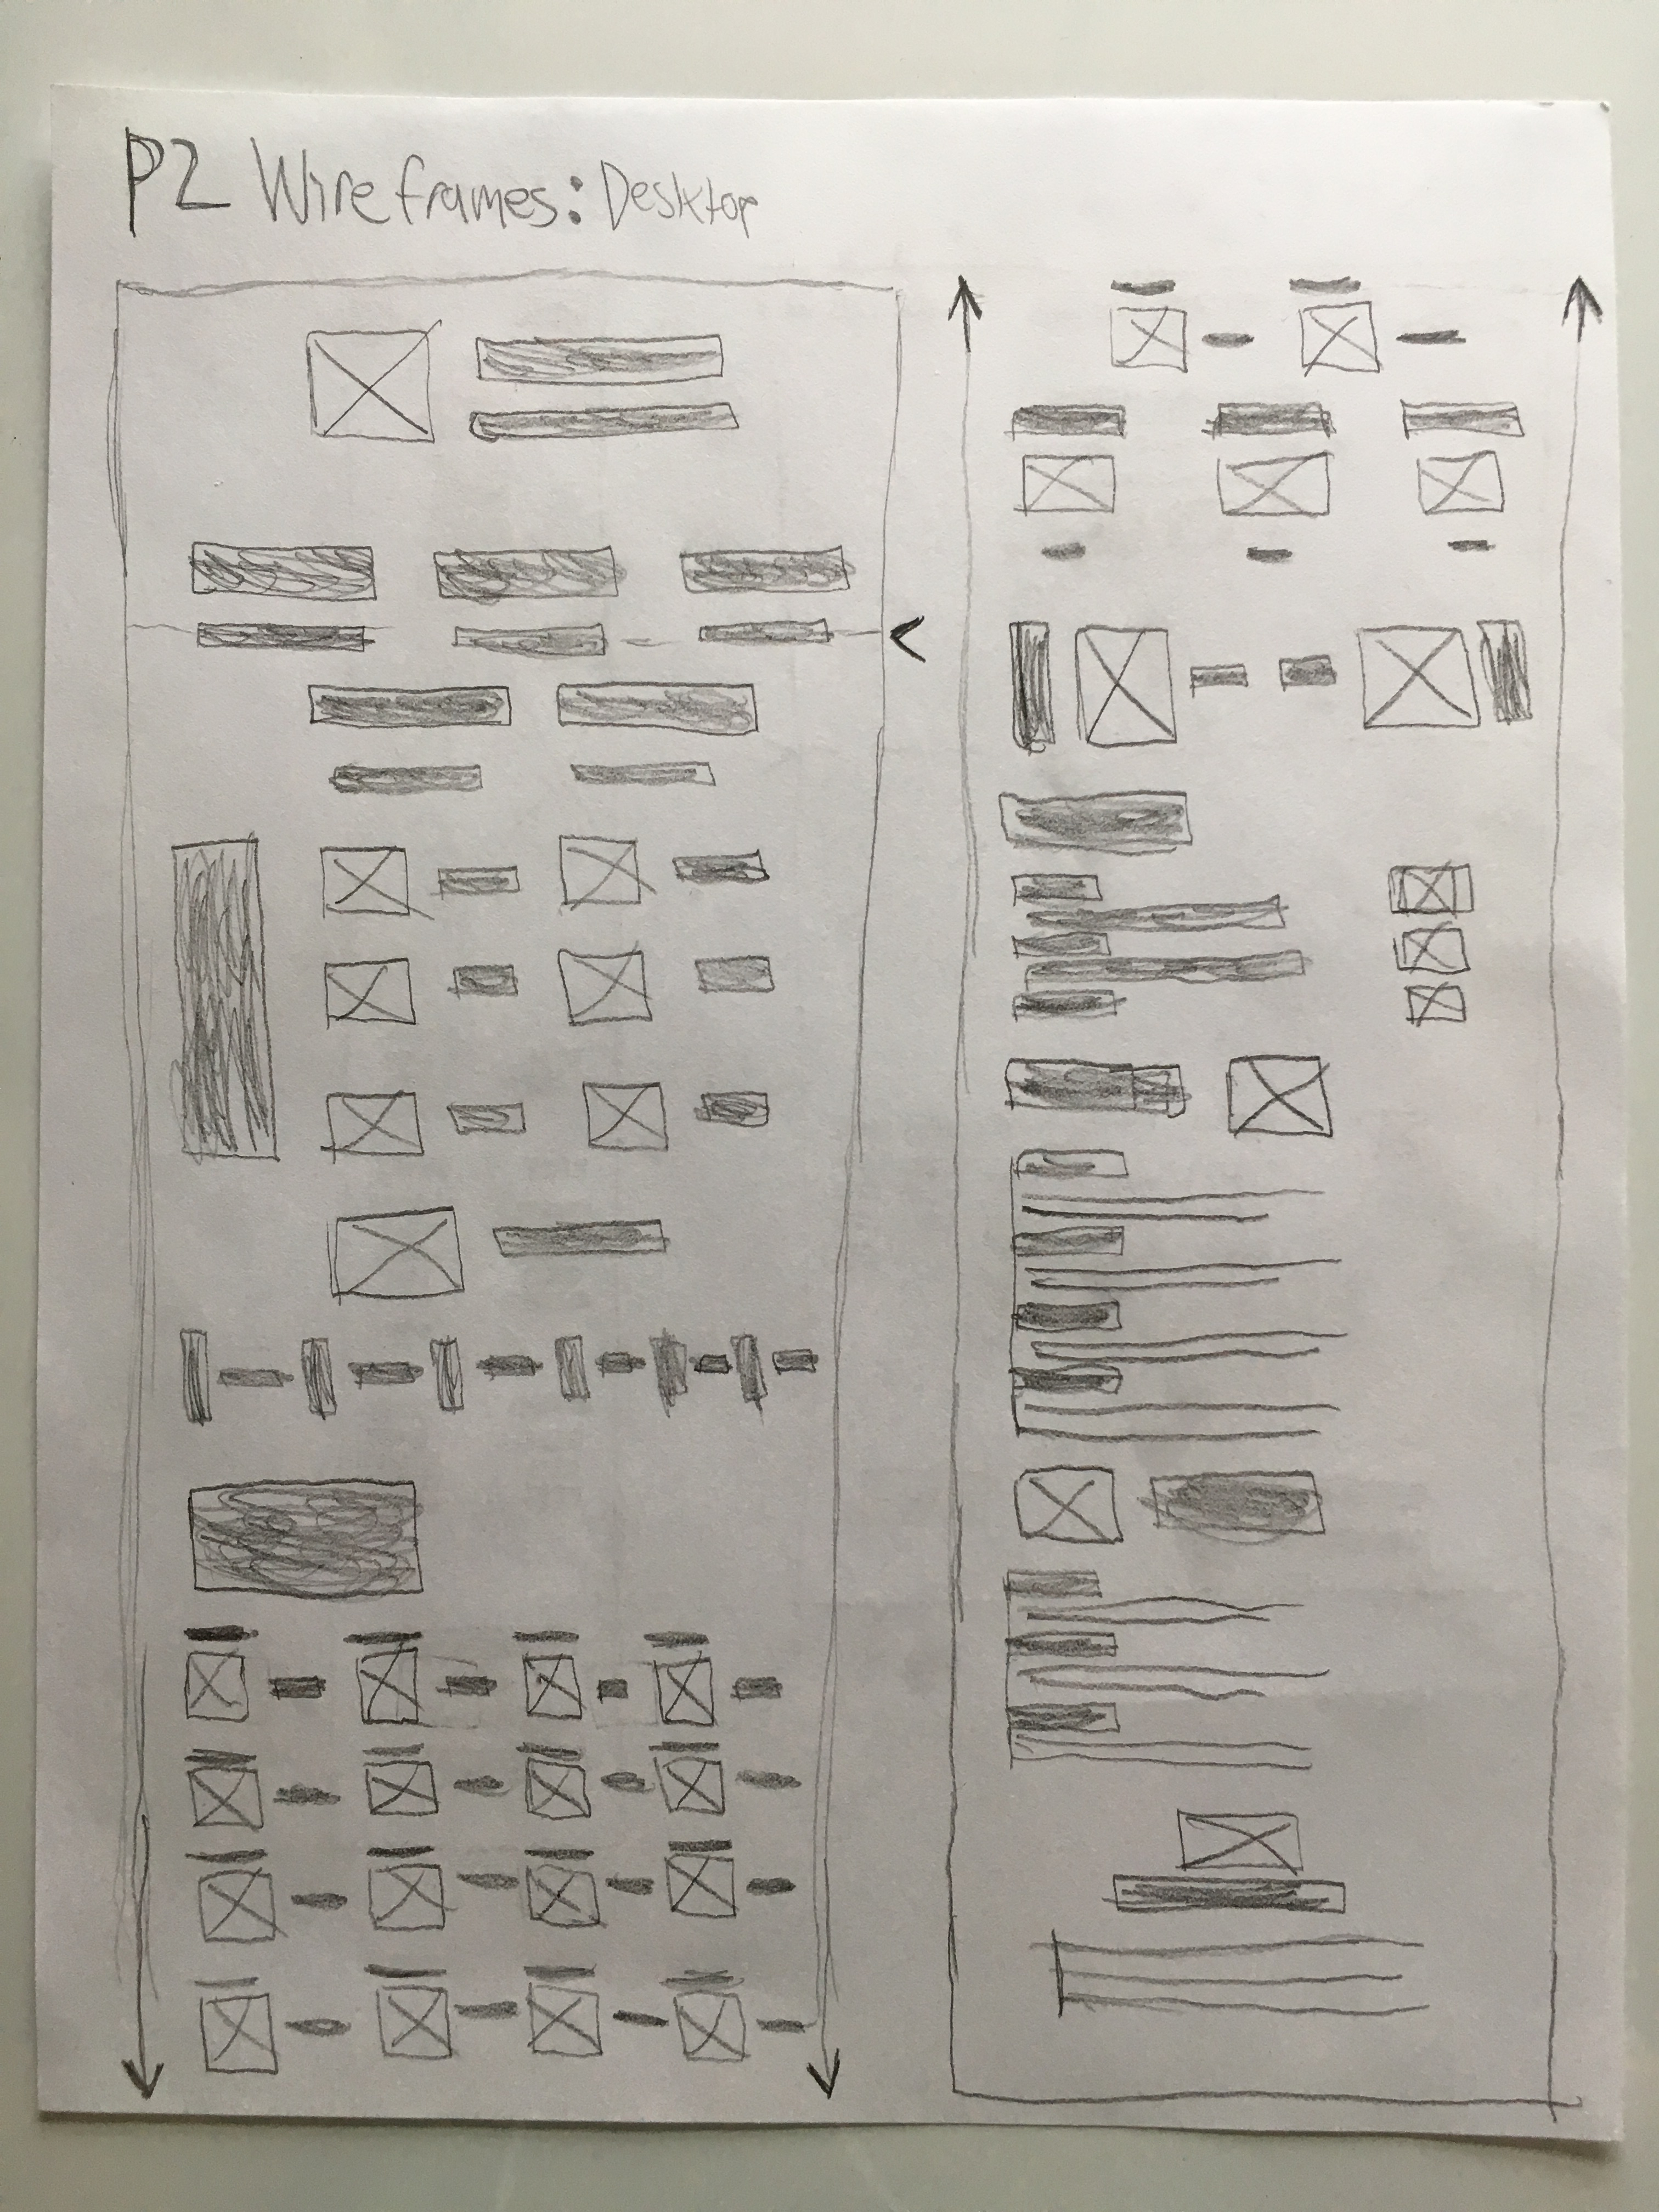 P2 Wireframes: Desktop